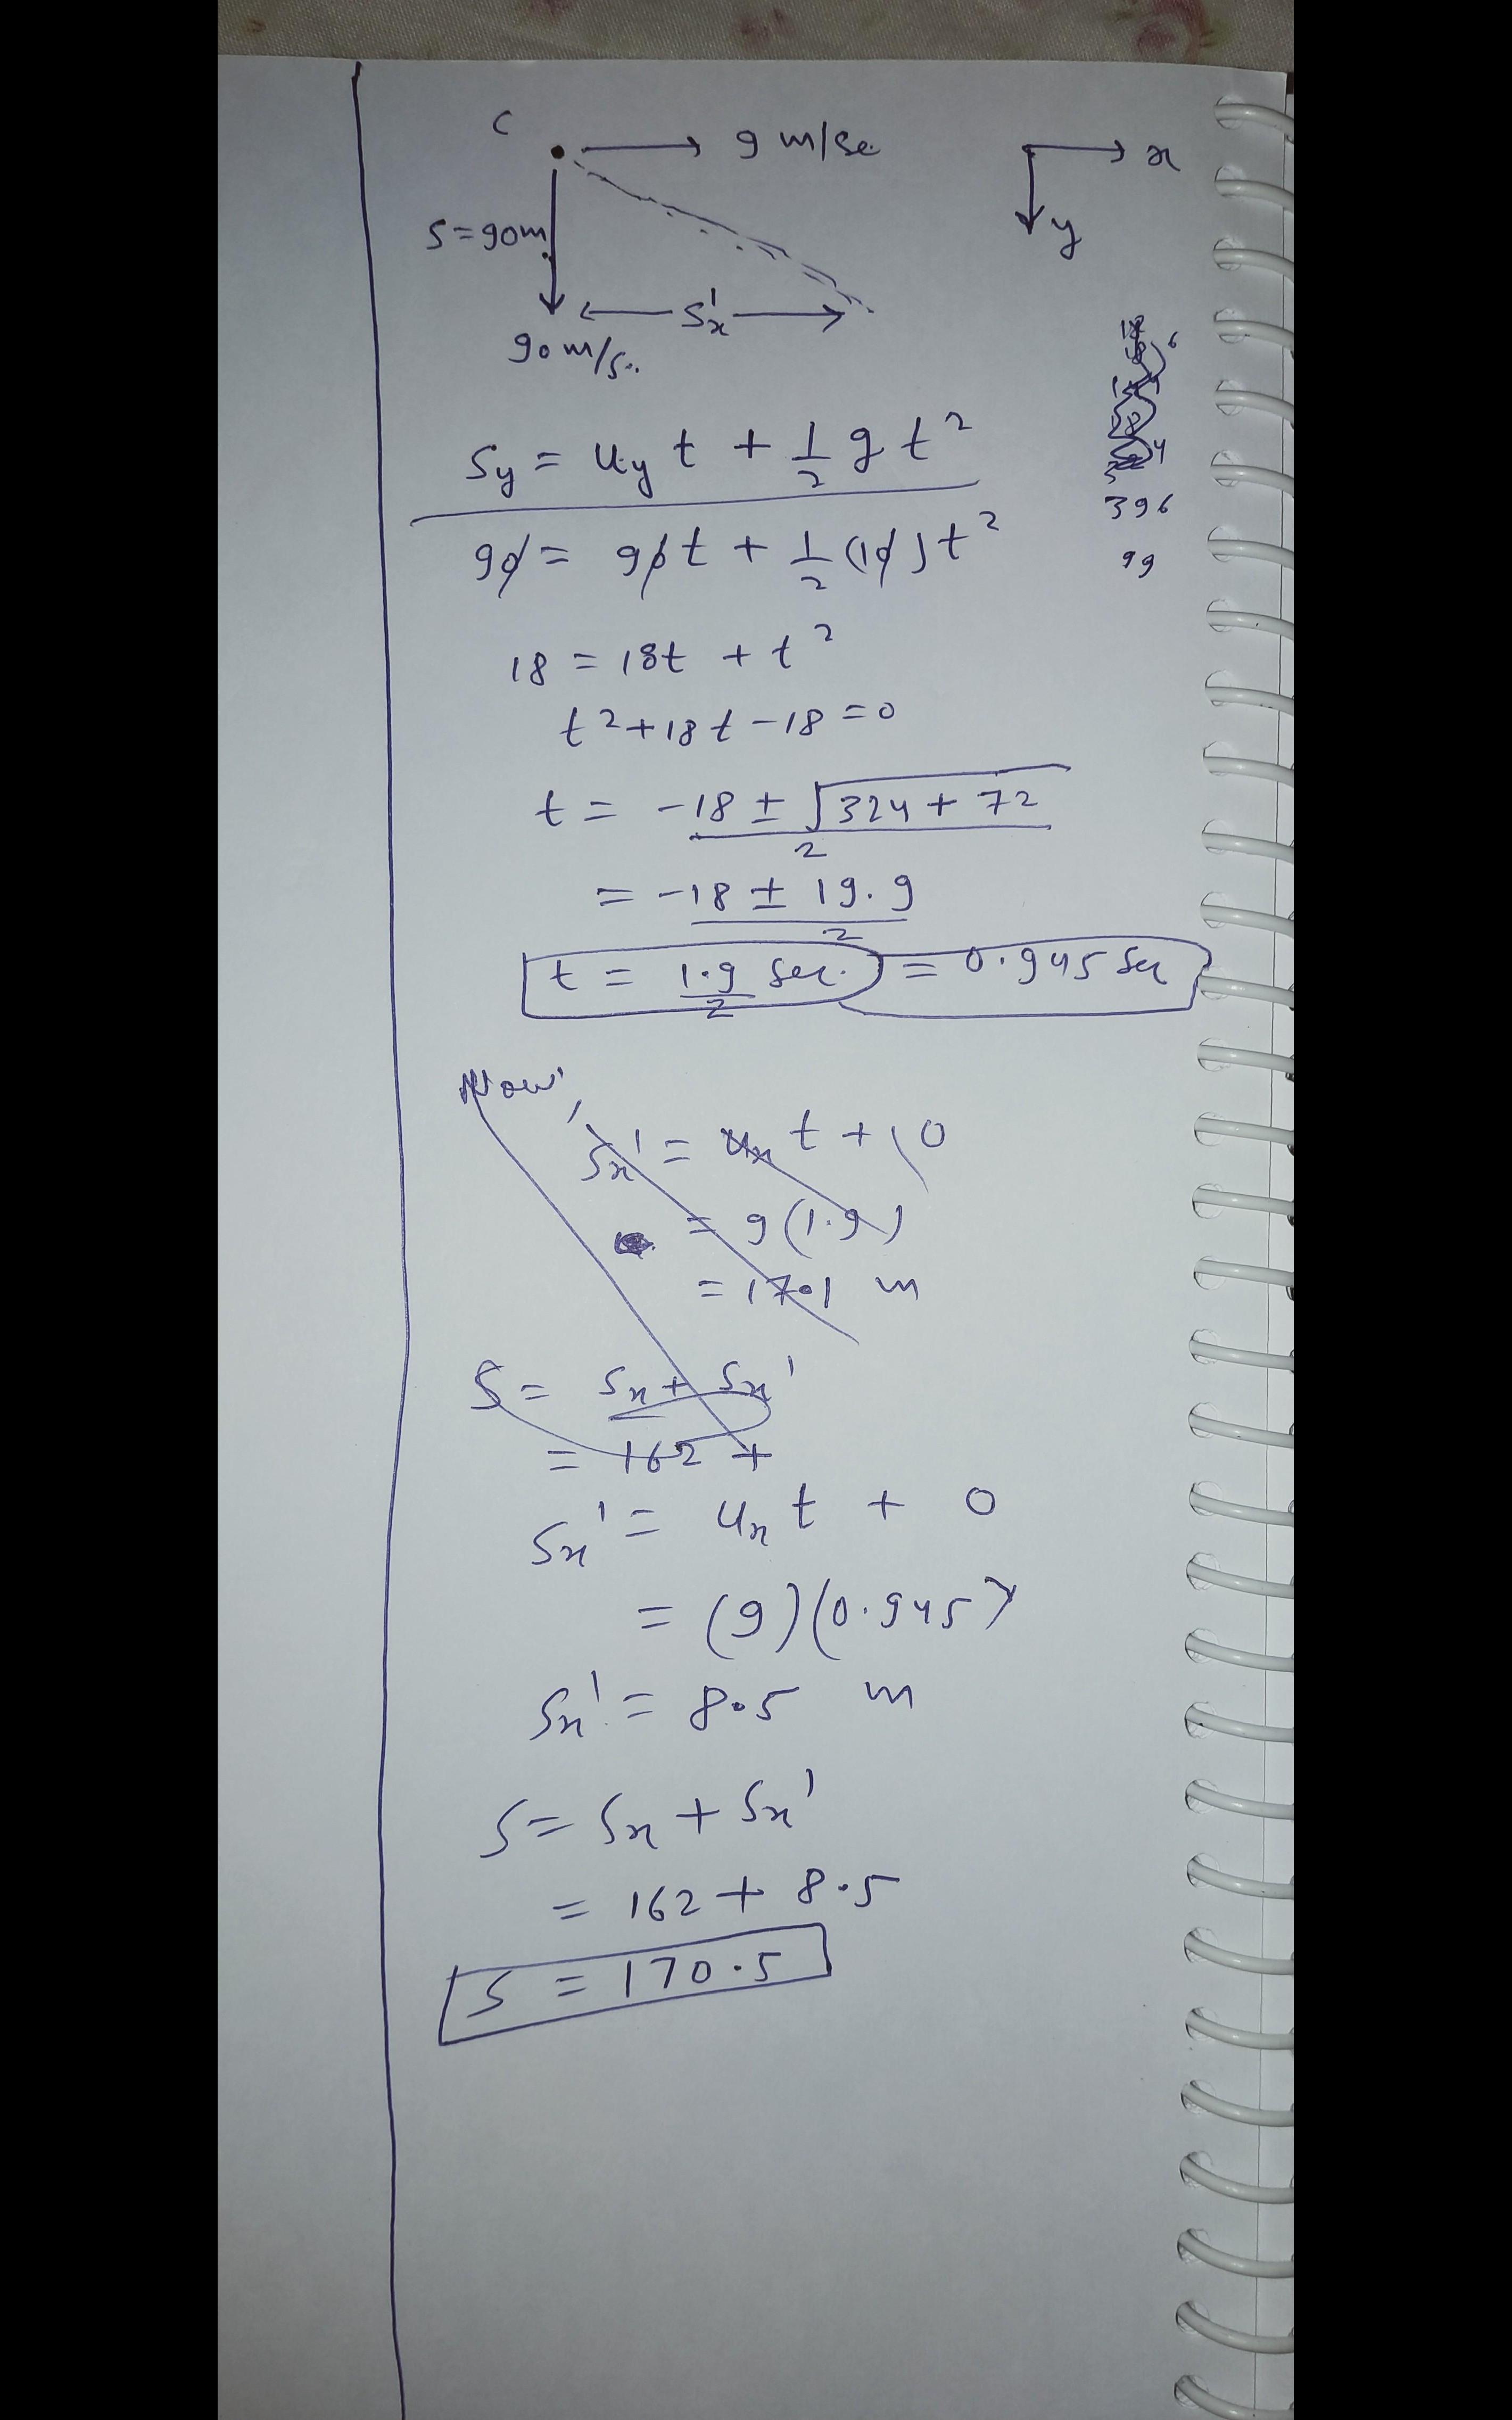 C
9 m/se
x
S=90m
y
Sx'
90 m/s.
Sy = Uy t + 1/2 g t²
396
90 = 90t + 1/2 (10)t²
99
18 = 18t + t²
t²+18t-18=0
t = -18 ± √324+72 / 2
= -18 ± 19.9 / 2
t = 1.9/2 sec. = 0.945 Sec
Now,
Sx' = ux t + 0
= 9(1.9)
= 17.1 m
S = Sx + Sx'
= 162 +
Sx' = Ux t + 0
= (9)(0.945)
Sx' = 8.5 m
S = Sx + Sx'
= 162 + 8.5
S = 170.5